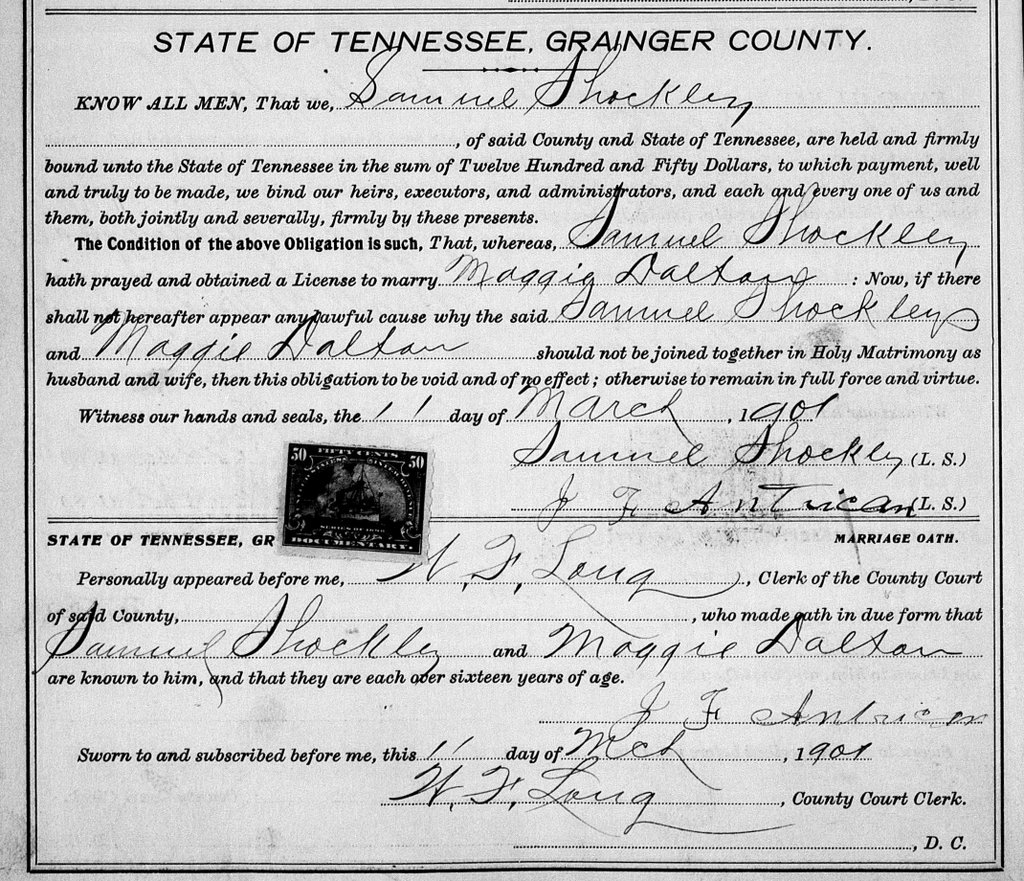 STATE OF TENNESSEE, GRAINGER COUNTY.
KNOW ALL MEN, That we, Samuel Shockley
, of said County and State of Tennessee, are held and firmly
bound unto the State of Tennessee in the sum of Twelve Hundred and Fifty Dollars, to which payment, well
and truly to be made, we bind our heirs, executors, and administrators, and each and every one of us and
them, both jointly and severally, firmly by these presents.
The Condition of the above Obligation is such, That, whereas, Samuel Shockley
hath prayed and obtained a License to marry Maggie Dalton : Now, if there
shall not hereafter appear any lawful cause why the said Samuel Shockley
and Maggie Dalton should not be joined together in Holy Matrimony as
husband and wife, then this obligation to be void and of no effect; otherwise to remain in full force and virtue.
Witness our hands and seals, the 11 day of March, 1901
Samuel Shockley (L. S.)
J F Antrican (L. S.)
50 FIFTY CENTS 50
SERIES OF 1898
DOCUMENTARY
STATE OF TENNESSEE, GR
MARRIAGE OATH.
Personally appeared before me, W. F. Long, Clerk of the County Court
of said County, , who made oath in due form that
Samuel Shockley and Maggie Dalton
are known to him, and that they are each over sixteen years of age.
J F Antrican
Sworn to and subscribed before me, this 11 day of Mch, 1901
W. F. Long, County Court Clerk.
, D. C.